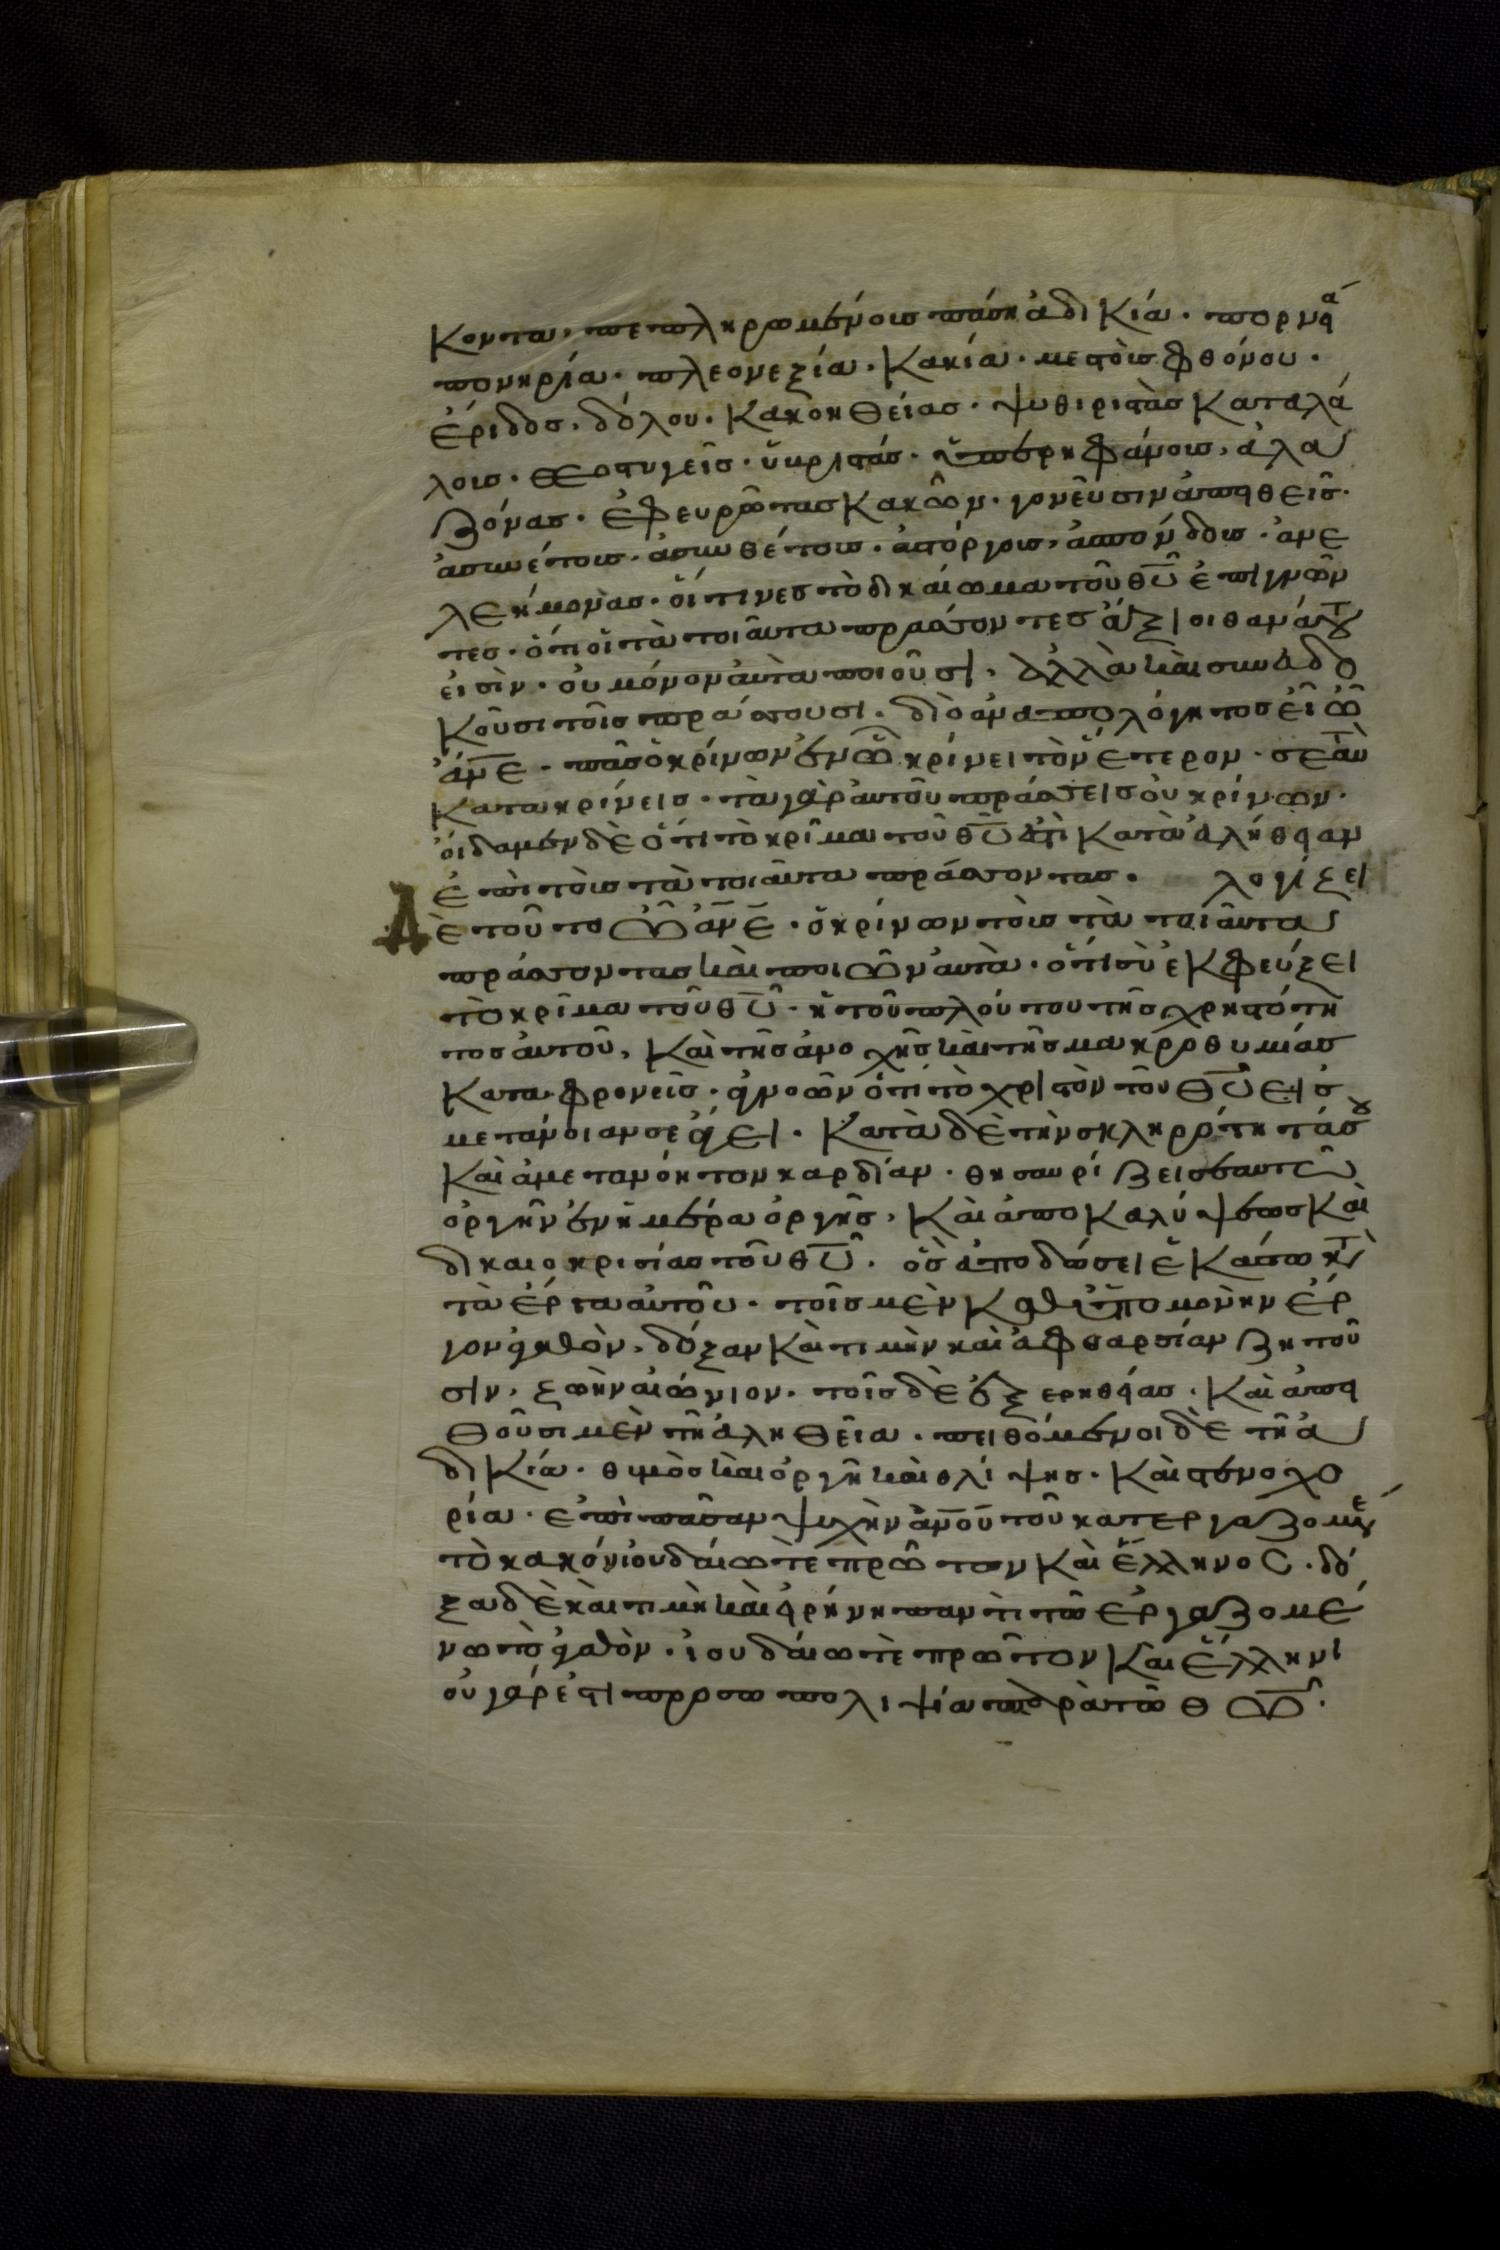 κοντα· πεπληρωμένοις πάσῃ ἀδικίᾳ· πορνεία
πονηρία· πλεονεξία· κακία· μεστοῖς φθόνου·
ἔριδος, δόλου· κακοηθείας· ψυθιριστὰς καταλά
λοις· θεοστυγεῖς· ὑβριστάς· ὑπερηφάνοις, ἀλα
ζόνας· ἐφευρῶτας κακῶν· γονεῦσιν ἀπειθεῖς·
ἀσυνέτοις· ἀσυνθέτοις· ἀστόργοις, ἀσπόνδοις· ἀνε
λεήμονὰς· οἵτινες τὸ δικαίωμα τοῦ θῦ ἐπιγνῶν
τες· ὅτι οἱ τὰ τοιαῦτα πράσσοντες ἄξιοι θανάτου
εἰσὶν· οὐ μόνον αὐτὰ ποιοῦσι, ἀλλὰ καὶ συνευδο
κοῦσι τοῖς πράσσουσι· διὸ ἀναπολόγητος εἶ ὦ
ἄνε· πᾶς ὁ κρίνων ἐν ὧ κρίνει τὸν ἕτερον· σεαυ
κατακρίνεις· τὰ γὰρ αὐτοῦ πράσσεις ὁ κρίνων·
οἴδαμεν δὲ ὅτι τὸ κρῖμα τοῦ θῦ ἐστὶ κατὰ ἀλήθειαν
ἐπὶ τοὶς τὰ τοιαῦτα πράσσοντας· λογίζει
Δὲ τοῦτο ὦ ἄνε· ὁ κρίνων τοὶς τὰ τοιαῦτα
πράσσοντας καὶ ποιῶν αὐτὰ· ὅτι σὺ ἐκφεύξει
τὸ κρῖμα τοῦ θῦ· ἢ τοῦ πλούτου τῆς χρηστότη
τος αὐτοῦ, καὶ τῆς ἀνοχῆς καὶ τῆς μακροθυμίας
καταφρονεῖς· ἀγνοῶν ὅτι τὸ χριστὸν τοῦ θῦ εἰς
μετάνοιαν σε ἄγει· κατὰ δὲ τὴν σκληρότητά σου
καὶ ἀμετανόητον καρδίαν· θησαυρίζεις ἑαυτῶ
ὀργὴν ἐν ἡμέρα ὀργῆς, καὶ ἀποκαλύψεως καὶ
δικαιοκρισίας τοῦ θῦ· ὃς ἀποδώσει ἑκάστω κτ
τὰ ἔργα αὐτοῦ· τοῖς μὲν καθ' ὑπομονὴν ἔρ
γον ἀγαθὸν, δόξαν καὶ τιμὴν καὶ ἀφθαρσίαν ζητοῦ
σιν, ζωὴν αἰώνιον· τοῖς δὲ ἐξ ερηθείας· καὶ ἀπει
θοῦσι μὲν τῆ ἀληθεῖα· πειθόμενοι δὲ τῆ ἀ
δικία· θυμὸς καὶ ὀργὴ καὶ θλίψης· καὶ στενοχο
ρία· ἐπὶ πᾶσαν ψυχὴν ἀνοῦ τοῦ κατεργαζομένου
τὸ κακόν ἰουδαίω τὲ πρῶτον καὶ ἕλληνος· δό
ξα δὲ καὶ τιμὴ καὶ εἰρήνη παντὶ τῶ ἐργαζομέ
νω τὸ ἀγαθὸν· ἰουδαίω τὲ πρῶτον καὶ ἕλληνι
οὐ γάρ ἐστι προσωπολιψία παρὰ τῶ θῶ·